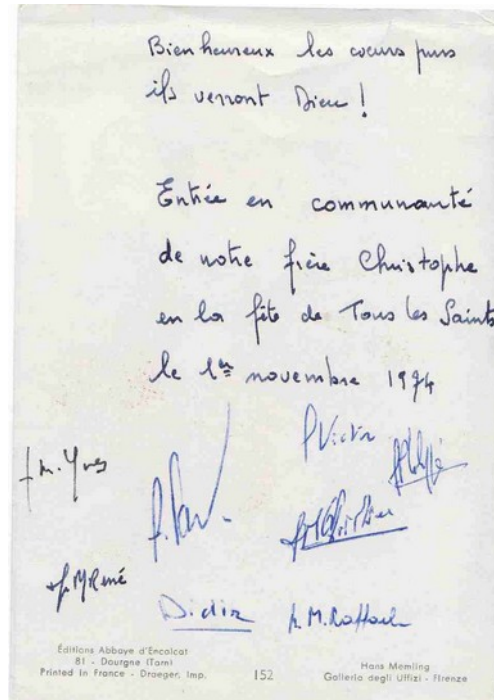 Bienheureux les cœurs purs
ils verront Dieu !
Entrée en communauté
de notre frère Christophe
en la fête de Tous les Saints
le 1er novembre 1974
P Victor
f. m. Yves
fr M René
Didier
fr. M. Raffaele
Éditions Abbaye d'Encalcat
81 - Dourgne (Tarn)
Printed in France - Draeger, Imp.
152
Hans Memling
Galleria degli Uffizi - Firenze